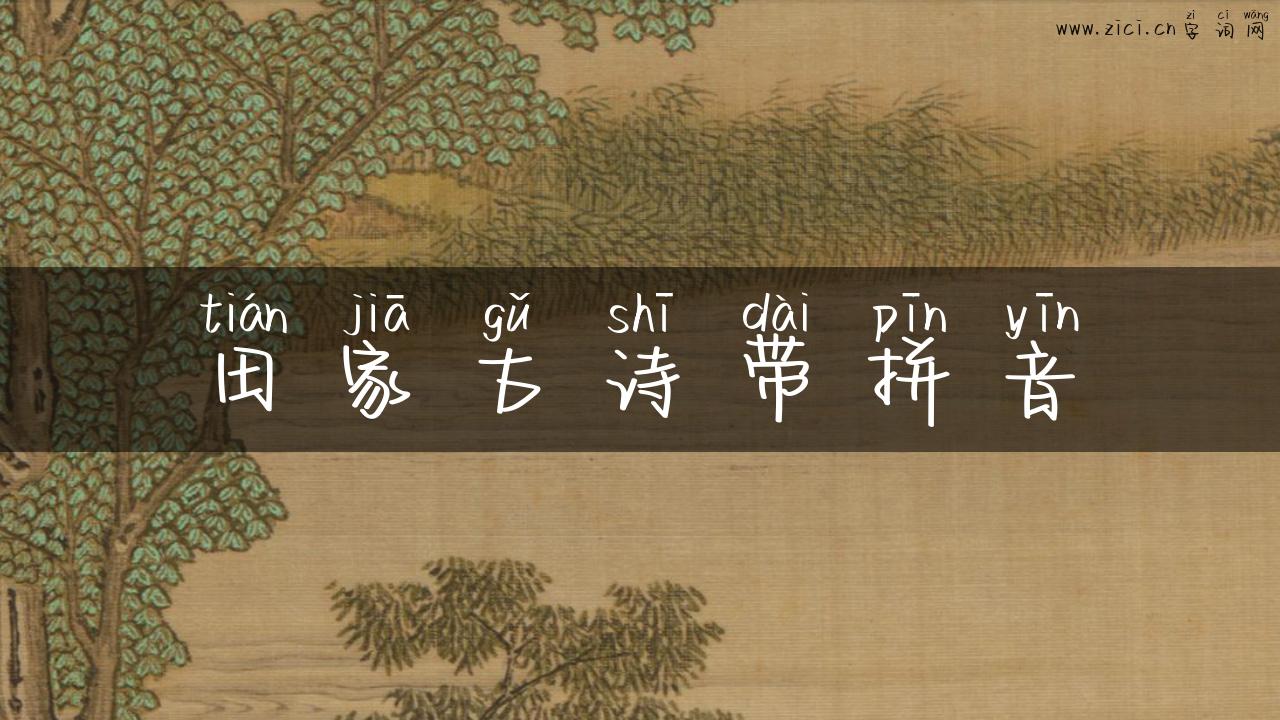 zì cí wǎng
www.zici.cn 字词网
tián jiā gǔ shī dài pīn yīn
田家古诗带拼音